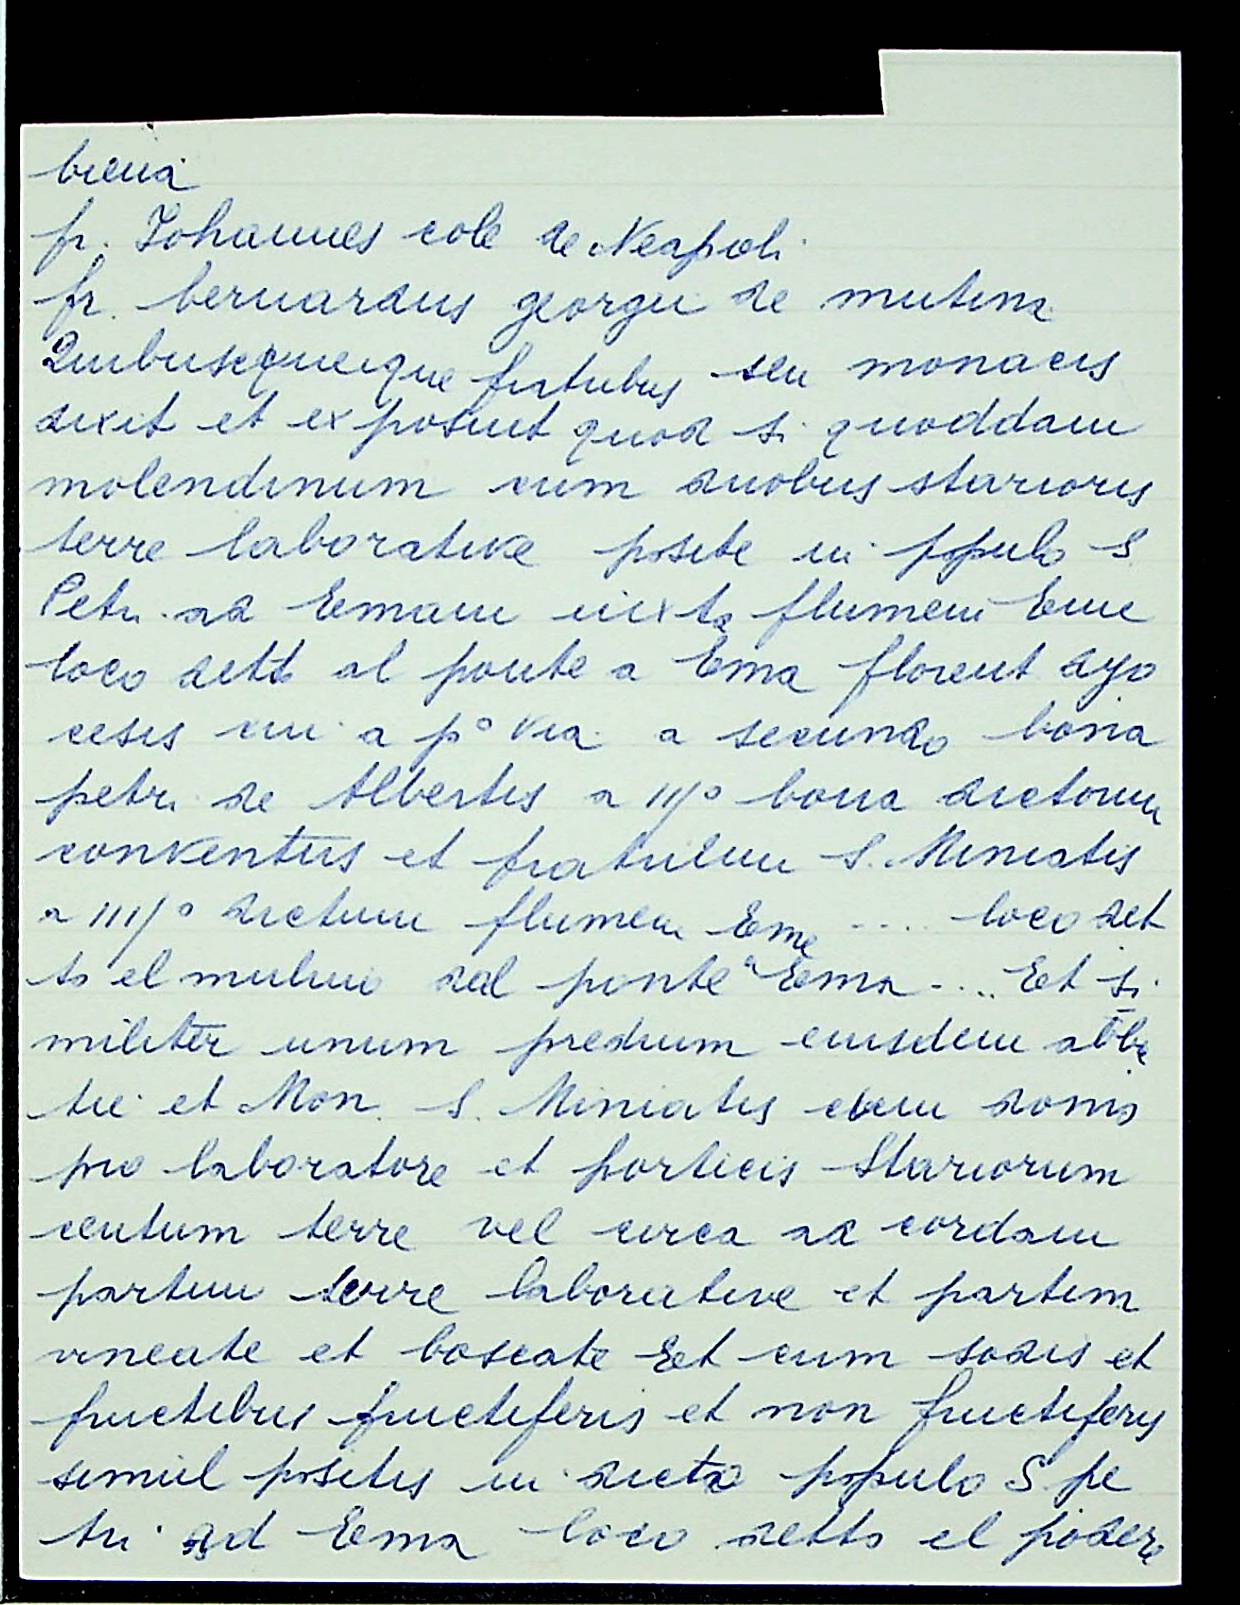 biena
fr. Iohannes cole de Neapoli
fr. bernardus georgii de mutina
Quibusquequique fratribus seu monacis
dixit et exposuit quod si quoddam
molendinum cum duobus starioris
terre laborative posite in populo S.
Petri ad Emam iuxta flumem Eme
loco detto al ponte a Ema florent dyo
cesis cui a p° via a secundo bona
petri de Albertis a III° bona dictorum
conventus et fratrum S. Miniatis
a IIII° dictum flumen Eme .... loco det
to el mulino del ponte a Ema .... Et si
militer unum predium eiusdem abba
tie et Mon. S. Miniatis cum domo
pro laboratore et porticis stariorum
centum terre vel circa ad cordam
partim terre laborative et partim
vineate et boscate Et cum sodis et
fructibus fructiferis et non fructiferis
simul positis in dicto populo S pe
tri ad Ema loco detto el podere